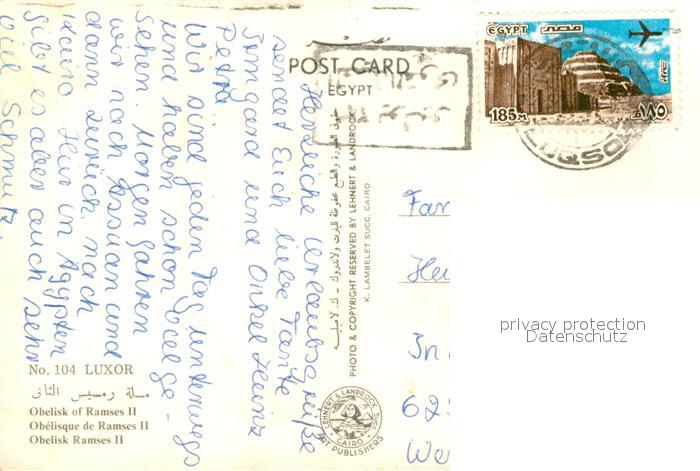 مصر
POST CARD
EGYPT
EGYPT مصر
185 M ١٨٥
LUQSOR
Herzliche Urlaubsgrüße
sendet Euch liebe Tante
Irmgard und Onkel Heinz
Petra
Wir sind jeden Tag unterwegs
und haben schon viel ge-
sehen. Morgen fahren
wir nach Assuan und
dann zurück nach
Kairo. Hier in Ägypten
gibt es aber auch sehr
viel Schmutz.
PHOTO & COPYRIGHT RESERVED BY LEHNERT & LANDROCK
K. LAMBELET SUCC. CAIRO
LEHNERT & LANDROCK SUCC.
CAIRO
ART PUBLISHERS
Fam
In
62
We
privacy protection
Datenschutz
No. 104 LUXOR
مسلة رمسيس الثانى
Obelisk of Ramses II
Obélisque de Ramses II
Obelisk Ramses II